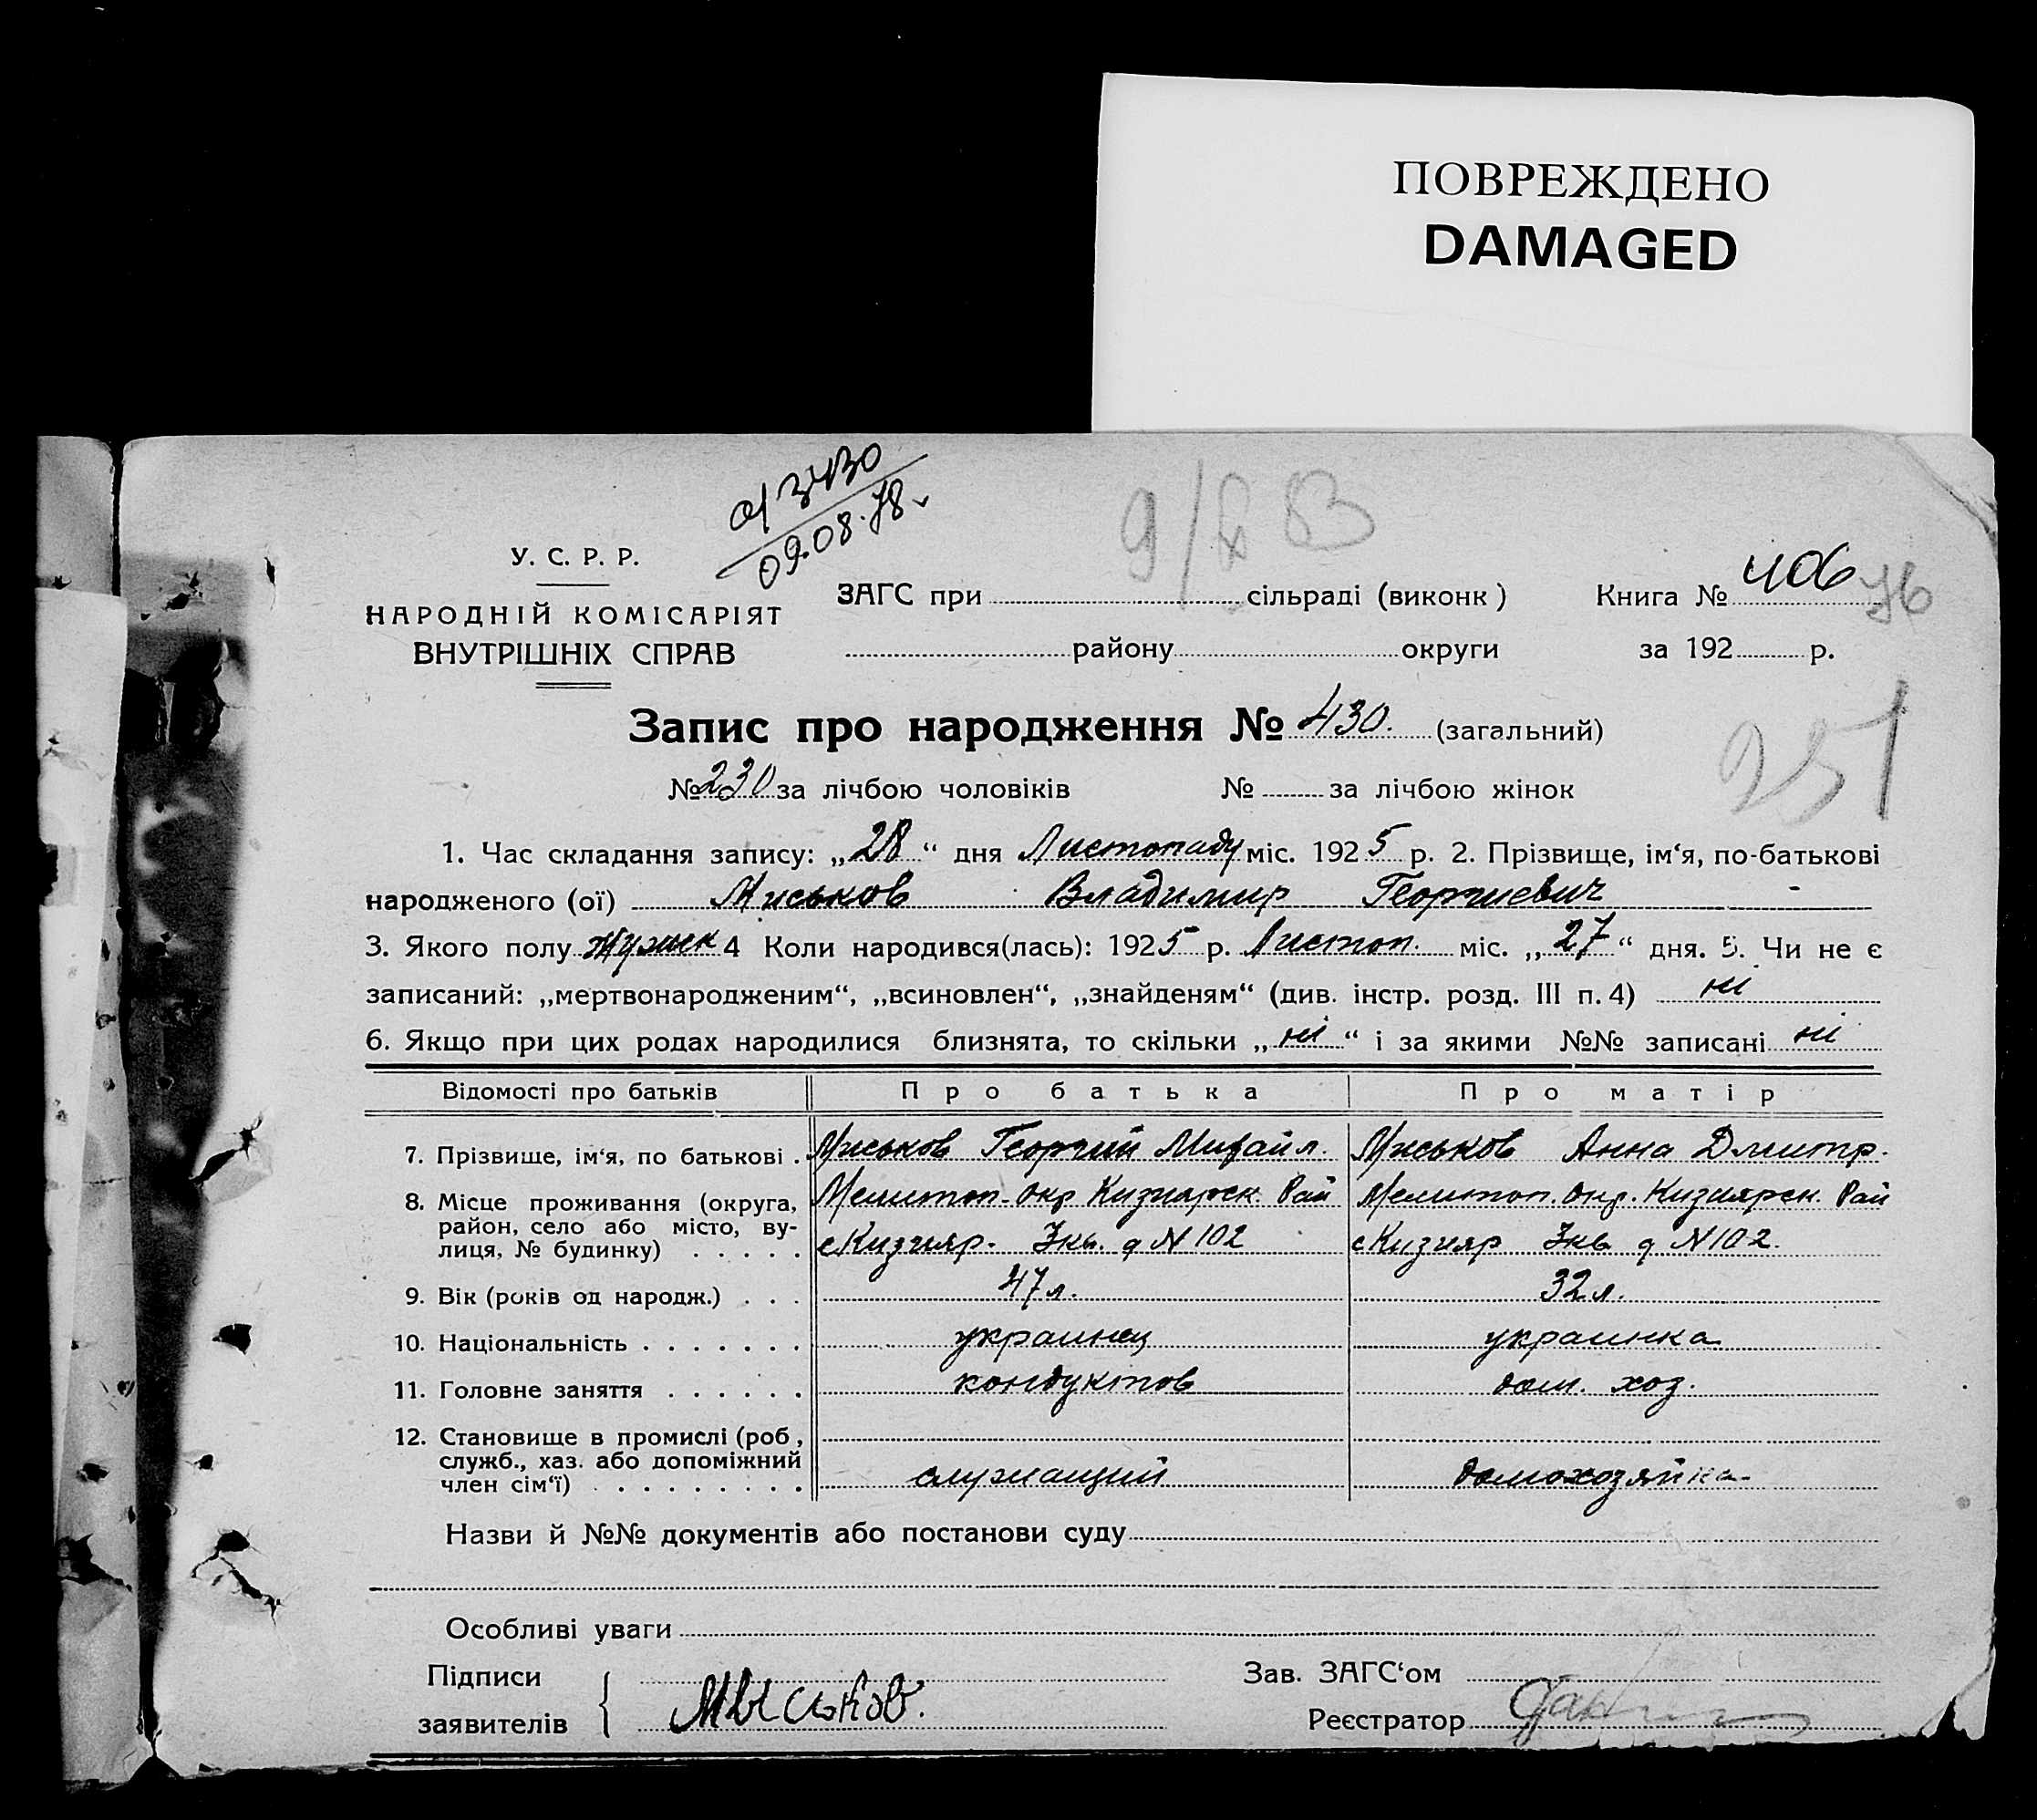 ПОВРЕЖДЕНО
DAMAGED
09.08.78
У. С. Р. Р.
НАРОДНІЙ КОМІСАРІЯТ
ВНУТРІШНІХ СПРАВ
ЗАГС при сільраді (виконк )
Книга № 406
76
району округи за 192 р.
Запис про народження № 430. (загальний)
251
№ 230 за лічбою чоловіків № за лічбою жінок
1. Час складання запису: „28“ дня Листопаду міс. 1925 р. 2. Прізвище, ім‘я, по-батькові
народженого (ої) Миськов Владимир Георгиевич
3. Якого полу мужеск 4 Коли народився(лась): 1925 р. Листоп. міс. „27“ дня. 5. Чи не є
записаний: „мертвонародженим“, „всиновлен“, „знайденям“ (див. інстр. розд. III п. 4) ні
6. Якщо при цих родах народилися близнята, то скільки „ні“ і за якими №№ записані ні
Відомості про батьків Про батька Про матір
7. Прізвище, ім‘я, по батькові . Миськов Георгий Михайл. Миськов Анна Дмитр.
8. Місце проживання (округа, Мелитоп. Окр Кизиярск. Рай Мелитоп. Окр. Кизиярск. Рай
район, село або місто, ву-
лиця, № будинку) . . . . . с Кизияр. 3кв. д N 102 с Кизияр 3кв д N 102.
9. Вік (років од народж.) . . . 47 л. 32 л.
10. Національність . . . . . . . украинец украинка
11. Головне заняття . . . . . . кондуктов дом. хоз.
12. Становище в промислі (роб.,
служб., хаз. або допоміжний
член сім‘ї) . . . . . . . . . служащий домохозяйка
Назви й №№ документів або постанови суду
Особливі уваги
Підписи Зав. ЗАГС‘ом
заявителів Мыськов. Реєстратор